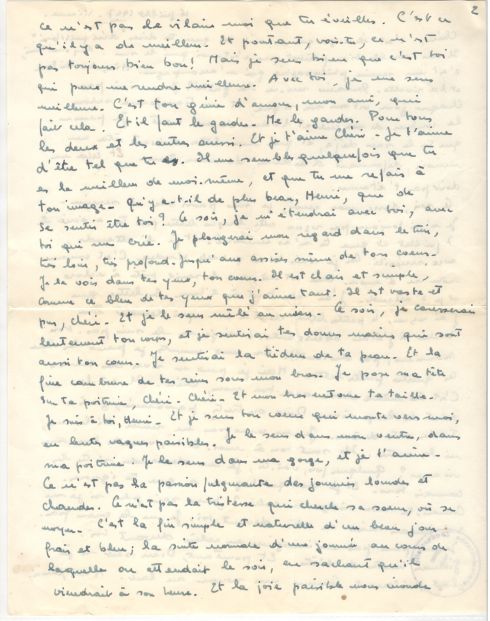 2
ce n'est pas le vilain moi que tu éveilles. C'est ce
qu'il y a de meilleur. Et pourtant, vois-tu, ce n'est
pas toujours bien bon! Mais je sens bien que c'est toi
qui peux me rendre meilleure. Avec toi je me sens
meilleure. C'est ton génie d'amour, mon ami, qui
fait cela. Et il faut le garder. Me le garder. Pour nous
les deux et les autres aussi. Et je t'aime Chéri. Je t'aime
d'être tel que tu es. Il me semble quelquefois que tu
es le meilleur de moi-même, et que tu me refais à
ton image. Qu'y a-t-il de plus beau, Henri, que de
se sentir être toi? Ce soir, je m'étendrai avec toi, avec
toi qui me crée. Je plongerai mon regard dans le tien,
très loin, très profond. Jusqu'aux assises même de ton coeur.
Je le vois dans tes yeux, ton coeur. Il est clair et simple,
comme ce bleu de tes yeux que j'aime tant. Il est vaste et
pur, chéri. Et je le sens mêlé au mien. Ce soir, je caresserai
lentement ton corps, et je sentirai tes douces mains qui sont
aussi ton coeur. Je sentirai la tiédeur de ta peau. Et la
fine cambrure de tes reins sous mon bras. Je pose ma tête
sur ta poitrine, chéri. Chéri. Et mon bras entoure ta taille.
Je suis à toi, Henri. Et je sens ton coeur qui monte vers moi,
en lentes vagues paisibles. Je le sens dans mon ventre, dans
ma poitrine. Je le sens dans ma gorge, et je t'aime.
Ce n'est pas la passion fulgurante des journées lourdes et
chaudes. Ce n'est pas la tristesse qui cherche sa soeur, où se
noyer. C'est la fin simple et naturelle d'un beau jour
frais et bleu; la suite normale d'une journée au cours de
laquelle on attendait le soir, en sachant qu'il
viendrait à son heure. Et la joie paisible nous inonde